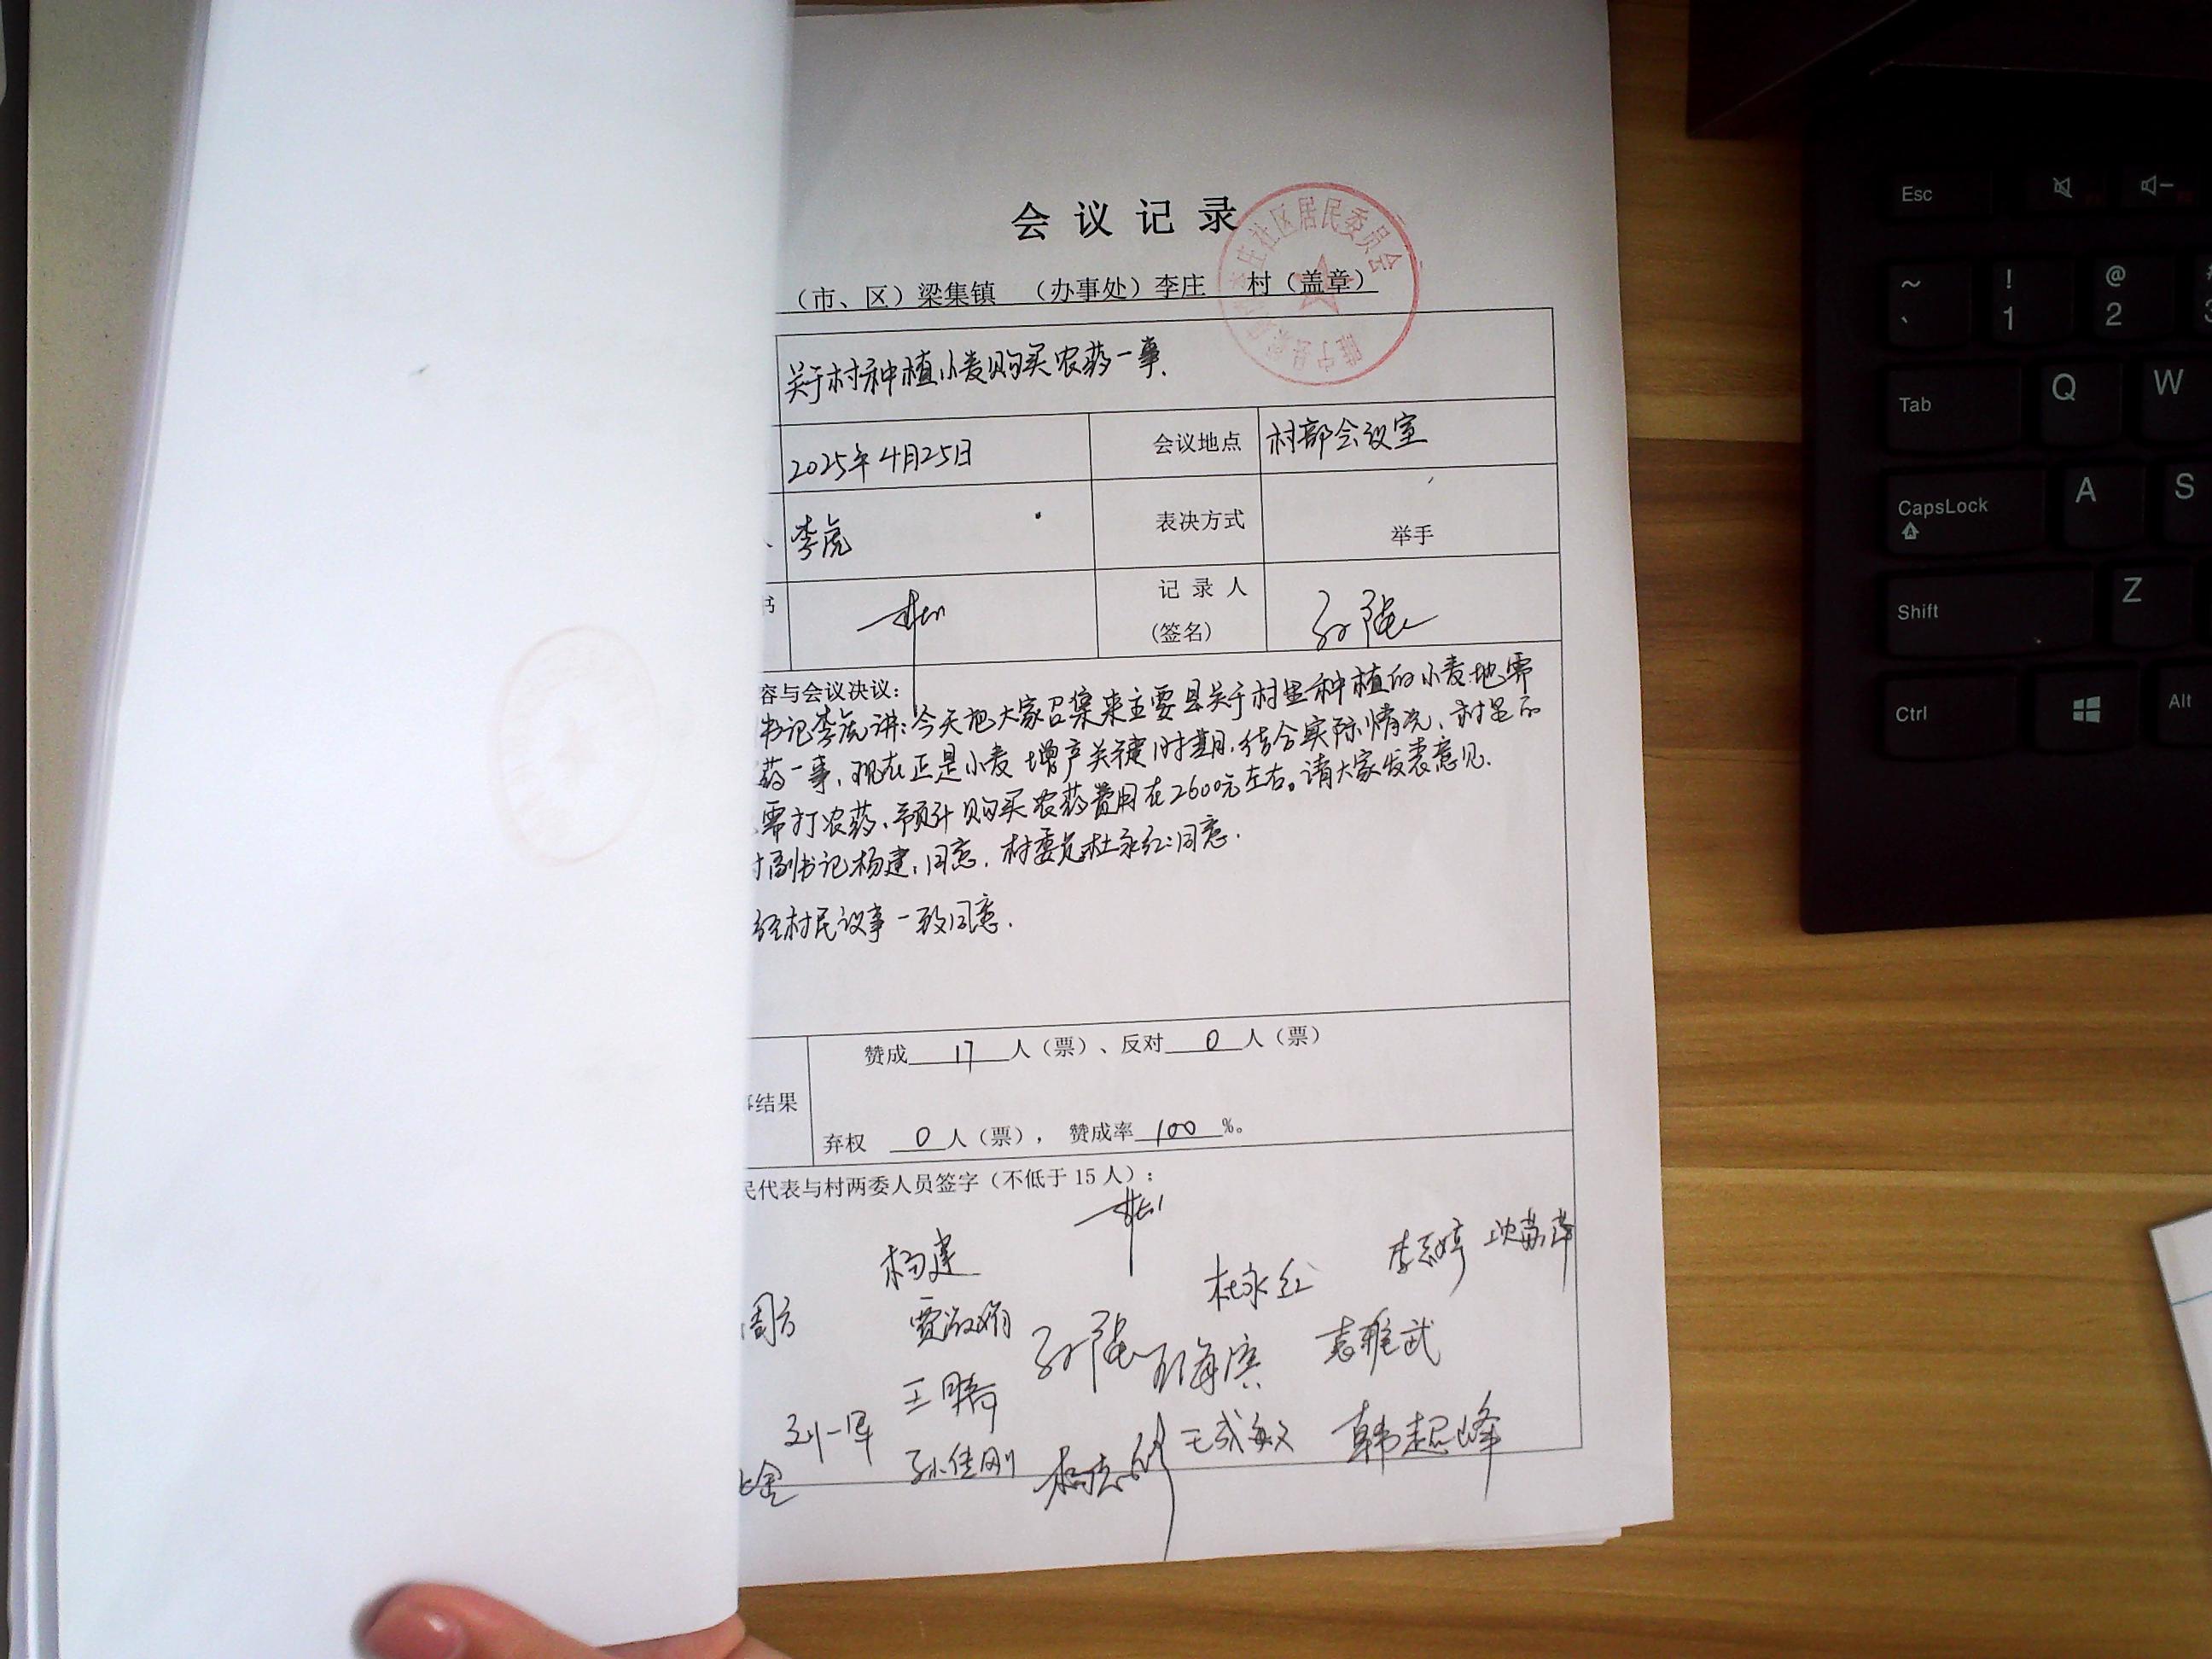 会议记录
（市、区）梁集镇 （办事处）李庄 村（盖章）
庄社区居民委员会
关于村种植小麦购买农药一事.
2025年4月25日 会议地点 村部会议室
李虎 表决方式 举手
书 记录人 (签名) 孙强
容与会议决议：
书记李虎讲:今天把大家召集来主要是关于村里种植的小麦地需
药一事,现在正是小麦增产关键时期,结合实际情况,
需打农药、预计购买农药费用在2600元左右。请大家发表意见.
村副书记杨建:同意. 村委员杜永红:同意.
经村民议事一致同意.
赞成 17 人（票）、反对 0 人（票）
事结果
弃权 0 人（票）， 赞成率 100 %。
民代表与村两委人员签字（不低于15人）：
杨建 杜永红 李志婷
周方 贾淑娟 孙强 袁雅武
刘一军 王腾
孙佳刚 王成敏 韩超峰
Esc
~ ` ! 1 @ 2
Tab Q W
CapsLock A S
Shift Z
Ctrl Alt